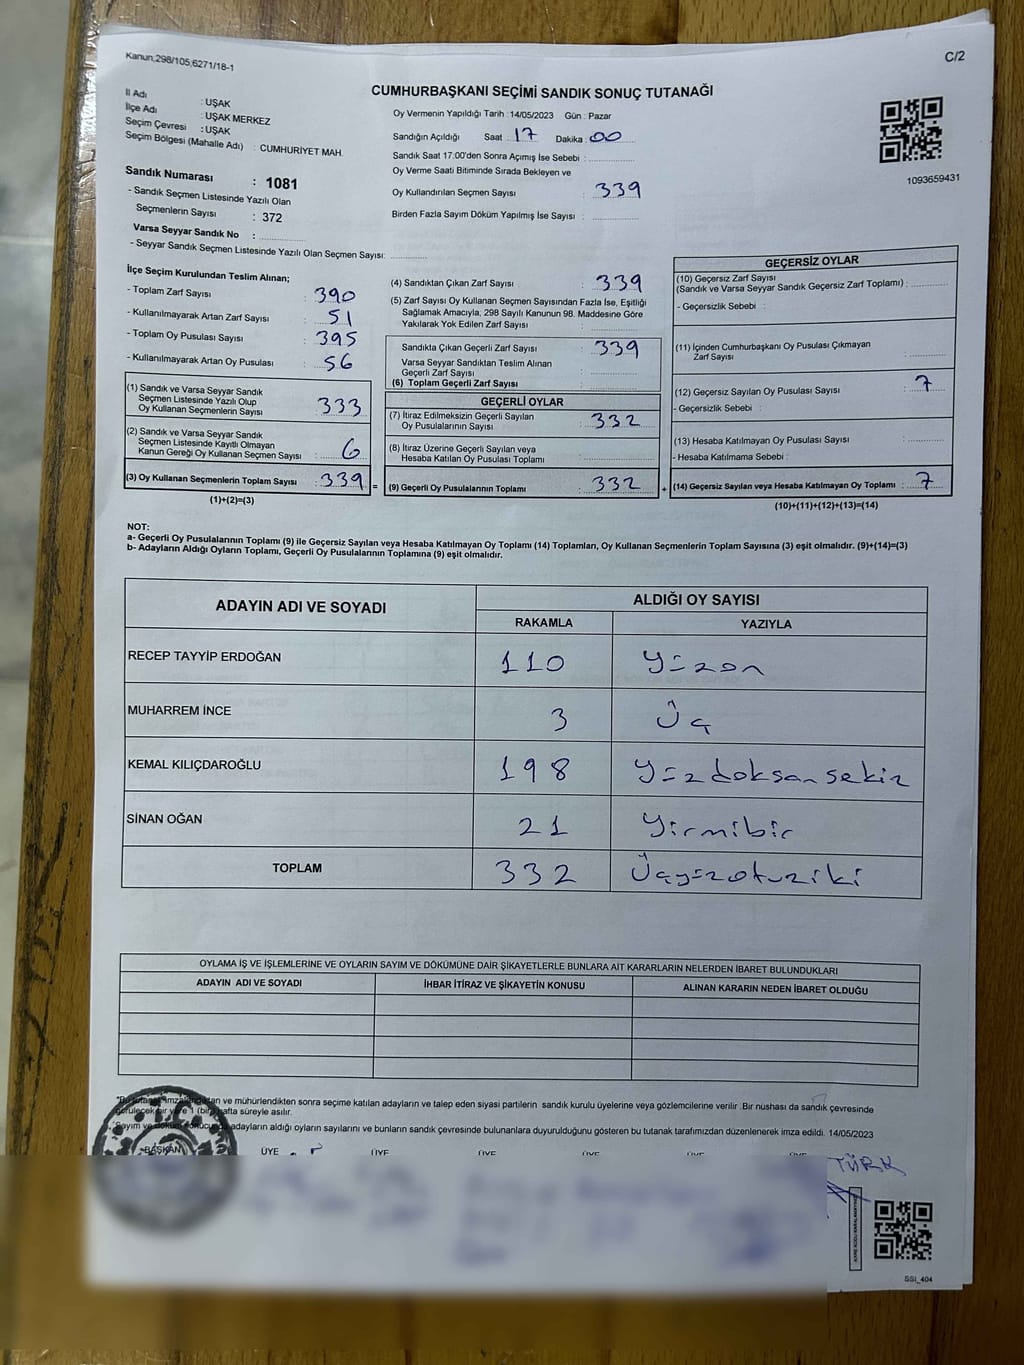 Kanun,298/105,6271/18-1
C/2
CUMHURBAŞKANI SEÇİMİ SANDIK SONUÇ TUTANAĞI
İl Adı : UŞAK
İlçe Adı : UŞAK MERKEZ
Seçim Çevresi : UŞAK
Seçim Bölgesi (Mahalle Adı) : CUMHURİYET MAH.
Sandık Numarası : 1081
- Sandık Seçmen Listesinde Yazılı Olan
Seçmenlerin Sayısı : 372
Varsa Seyyar Sandık No :
- Seyyar Sandık Seçmen Listesinde Yazılı Olan Seçmen Sayısı:
Oy Vermenin Yapıldığı Tarih : 14/05/2023 Gün : Pazar
Sandığın Açıldığı Saat : 17 Dakika : 00
Sandık Saat 17.00'den Sonra Açımış İse Sebebi :
Oy Verme Saati Bitiminde Sırada Bekleyen ve
Oy Kullandırılan Seçmen Sayısı : 339
Birden Fazla Sayım Döküm Yapılmış İse Sayısı :
1093659431
İlçe Seçim Kurulundan Teslim Alınan;
- Toplam Zarf Sayısı : 390
- Kullanılmayarak Artan Zarf Sayısı : 51
- Toplam Oy Pusulası Sayısı : 395
- Kullanılmayarak Artan Oy Pusulası : 56
(1) Sandık ve Varsa Seyyar Sandık
Seçmen Listesinde Yazılı Olup
Oy Kullanan Seçmenlerin Sayısı : 333
(2) Sandık ve Varsa Seyyar Sandık
Seçmen Listesinde Kayıtlı Olmayan
Kanun Gereği Oy Kullanan Seçmen Sayısı : 6
(3) Oy Kullanan Seçmenlerin Toplam Sayısı : 339 =
(1)+(2)=(3)
(4) Sandıktan Çıkan Zarf Sayısı : 339
(5) Zarf Sayısı Oy Kullanan Seçmen Sayısından Fazla İse, Eşitliği
Sağlamak Amacıyla, 298 Sayılı Kanunun 98. Maddesine Göre
Yakılarak Yok Edilen Zarf Sayısı :
Sandıkta Çıkan Geçerli Zarf Sayısı : 339
Varsa Seyyar Sandıktan Teslim Alınan
Geçerli Zarf Sayısı :
(6) Toplam Geçerli Zarf Sayısı :
GEÇERLİ OYLAR
(7) İtiraz Edilmeksizin Geçerli Sayılan
Oy Pusulalarının Sayısı : 332
(8) İtiraz Üzerine Geçerli Sayılan veya
Hesaba Katılan Oy Pusulası Toplamı :
(9) Geçerli Oy Pusulalarının Toplamı : 332 +
GEÇERSİZ OYLAR
(10) Geçersiz Zarf Sayısı
(Sandık ve Varsa Seyyar Sandık Geçersiz Zarf Toplamı) :
- Geçersizlik Sebebi :
(11) İçinden Cumhurbaşkanı Oy Pusulası Çıkmayan
Zarf Sayısı :
(12) Geçersiz Sayılan Oy Pusulası Sayısı : 7
- Geçersizlik Sebebi :
(13) Hesaba Katılmayan Oy Pusulası Sayısı :
- Hesaba Katılmama Sebebi :
(14) Geçersiz Sayılan veya Hesaba Katılmayan Oy Toplamı : 7
(10)+(11)+(12)+(13)=(14)
NOT:
a- Geçerli Oy Pusulalarının Toplamı (9) ile Geçersiz Sayılan veya Hesaba Katılmayan Oy Toplamı (14) Toplamları, Oy Kullanan Seçmenlerin Toplam Sayısına (3) eşit olmalıdır. (9)+(14)=(3)
b- Adayların Aldığı Oyların Toplamı, Geçerli Oy Pusulalarının Toplamına (9) eşit olmalıdır.
ADAYIN ADI VE SOYADI
ALDIĞI OY SAYISI
RAKAMLA YAZIYLA
RECEP TAYYİP ERDOĞAN 110 Yüzon
MUHARREM İNCE 3 Üç
KEMAL KILIÇDAROĞLU 198 Yüzdoksansekiz
SİNAN OĞAN 21 Yirmibir
TOPLAM 332 Üçyüzotuziki
OYLAMA İŞ VE İŞLEMLERİNE VE OYLARIN SAYIM VE DÖKÜMÜNE DAİR ŞİKAYETLERLE BUNLARA AİT KARARLARIN NELERDEN İBARET BULUNDUKLARI
ADAYIN ADI VE SOYADI İHBAR İTİRAZ VE ŞİKAYETİN KONUSU ALINAN KARARIN NEDEN İBARET OLDUĞU
ve mühürlendikten sonra seçime katılan adayların ve talep eden siyasi partilerin sandık kurulu üyelerine veya gözlemcilerine verilir. Bir nushası da sandık çevresinde
görülecek bir yere 1 (bir) hafta süreyle asılır.
adayların aldığı oyların sayılarını ve bunların sandık çevresinde bulunanlara duyurulduğunu gösteren bu tutanak tarafımızdan düzenlenerek imza edildi. 14/05/2023
BAŞKAN ÜYE ÜYE ÜYE ÜYE ÜYE ÜYE
TÜRK
SSİ_404